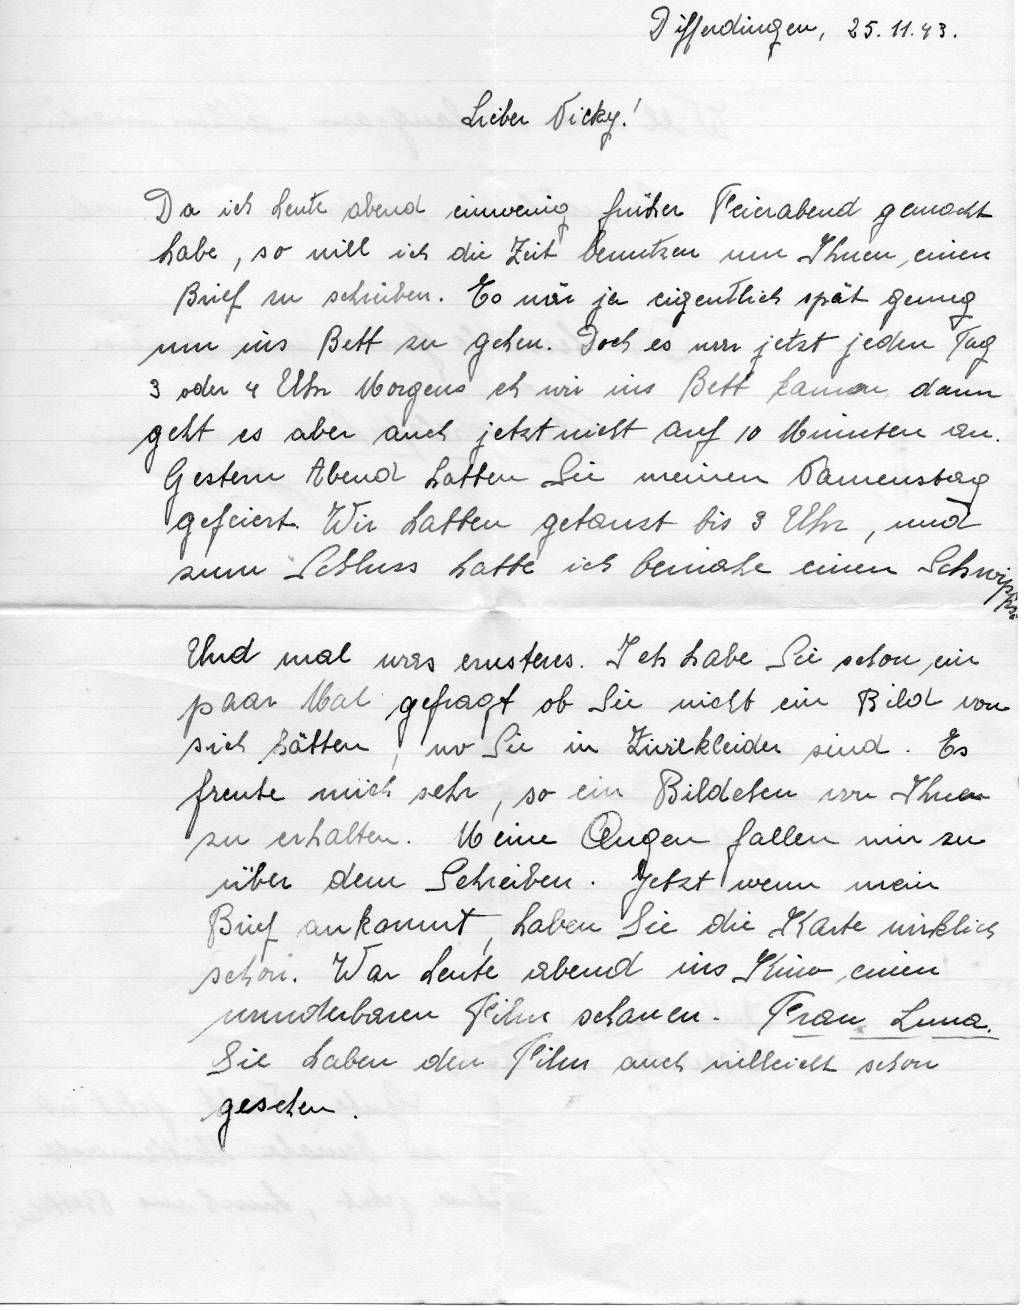 Differdingen, 25.11.43.
Lieber Nicky!
Da ich heute abend einwenig früher Feierabend gemacht
habe, so will ich die Zeit benutzen um Ihnen, einen
Brief zu schreiben. Es wär ja eigentlich spät genug
um ins Bett zu gehen. Doch es war jetzt jeden Tag
3 oder 4 Uhr Morgens eh wir ins Bett kamen, dann
geht es aber auch jetzt nicht auf 10 Minuten an.
Gestern Abend hatten Sie meinen Namenstag
gefeiert. Wir hatten getanzt bis 3 Uhr, und
zum Schluss hatte ich beinahe einen Schwipps
Und mal was ernsteres. Ich habe Sie schon ein
paar Mal gefragt ob Sie nicht ein Bild von
sich hätten, wo Sie in Zivilkleider sind. Es
freute mich sehr, so ein Bildchen von Ihnen
zu erhalten. Meine Augen fallen mir zu
über dem Schreiben. Jetzt wenn mein
Brief ankommt, haben Sie die Karte wirklich
schon. War heute abend ins Kino, einen
wunderbaren Film schauen. Frau Luna.
Sie haben den Film auch villeicht schon
gesehen.